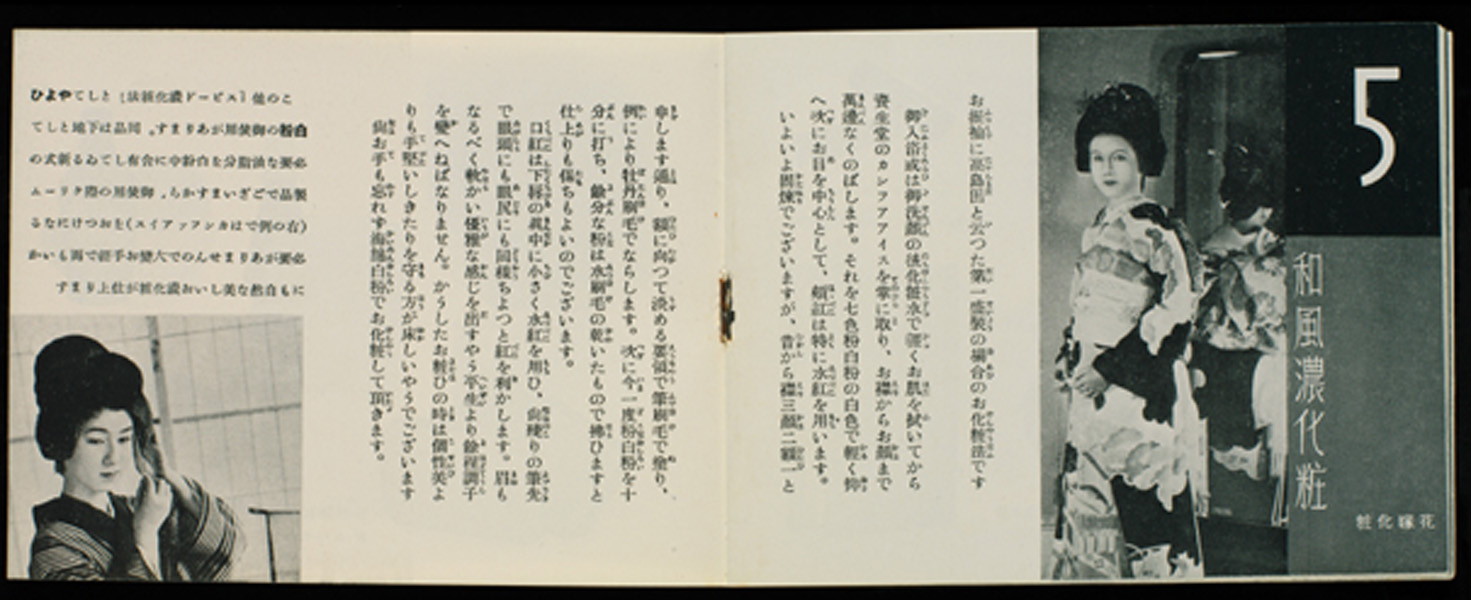 5
和風濃化粧
粧化嫁花
お振袖に高島田と云つた第一盛裝の場合のお化粧法です
御入浴或は御洗顔の後化粧水で輕くお肌を拭いてから
資生堂のカシファアイスを掌に取り、お襟からお顔まで
萬遍なくのばします。それを七色粉白粉の白色で輕く抑
へ次にお目を中心として、頬紅は特に水紅を用います。
いよいよ固煉でございますが、昔から襟三顔二額一と
申します通り、額に向つて淡める要領で筆刷毛で塗り、
例により牡丹刷毛でならします。次に今一度粉白粉を十
分に打ち、餘分な粉は水刷毛の乾いたもので拂ひますと
仕上りも保ちもよいのでございます。
口紅は下唇の眞中に小さく水紅を用ひ、尚殘りの筆先
で眼頭にも眼尻にも同樣ちよつと紅を利かします。眉も
なるべく軟かい優雅な感じを出すやう平生より餘程調子
を變へねばなりません。かうしたお粧ひの時は個性美よ
りも手堅いしきたりを守る方が床しいやうでございます
尚お手も忘れず海綿白粉でお化粧して頂きます。
ひよやてしと［法粧化濃ドーピス］他のこ
てしと地下は品同。すまりあが用使御の粉白
の式新るゐてし有含に中粉白を分脂油な要必
ムーリク際の用使御、らかすまいざごで品製
るなにけつおを（スイアァフシカはで例の右）
かいも雨で粧手お變六でのんせまりあが要必
すまり上仕が粧化濃おいし美な然自もに